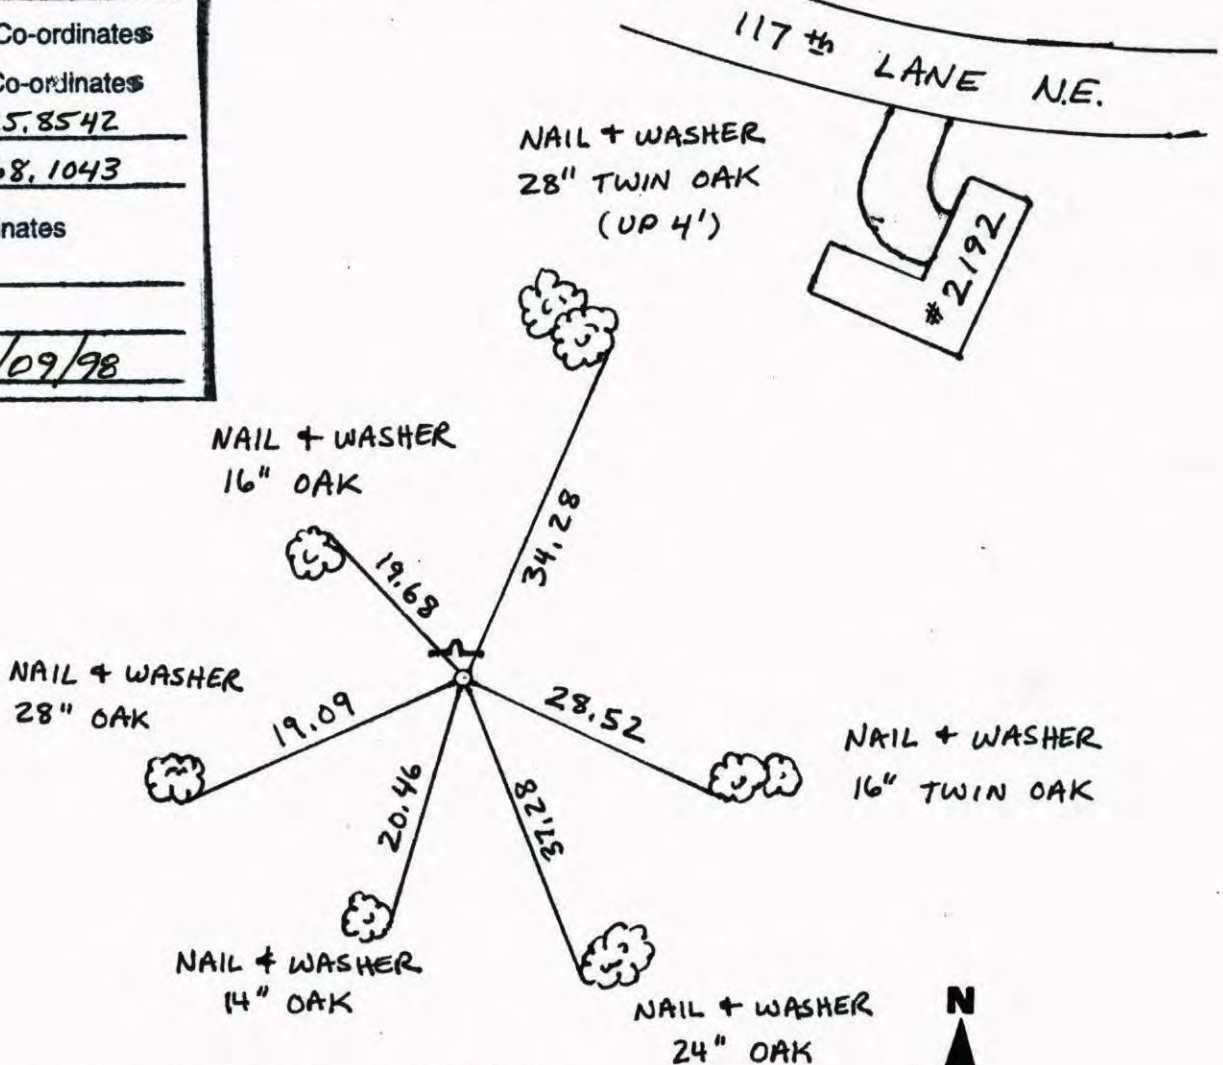 Co-ordinates
Co-ordinates
5.8542
68.1043
nates
/09/98
117th LANE N.E.
#2192
NAIL + WASHER
28" TWIN OAK
(UP 4')
NAIL + WASHER
16" OAK
34.28
19.68
NAIL + WASHER
28" OAK
19.09
28.52
NAIL + WASHER
16" TWIN OAK
20.46
37.28
NAIL + WASHER
14" OAK
NAIL + WASHER
24" OAK
N